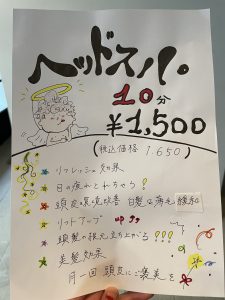 ヘッドスパ。
10分
¥1,500
(税込価格 1.650)
リフレッシュ効果
目の疲れとれちゃう!
頭皮の環境改善 白髪&薄毛 緩和
リフトアップ
頭髪の根元立ち上がる!!!
美髪効果
月一回 頭皮にご褒美を